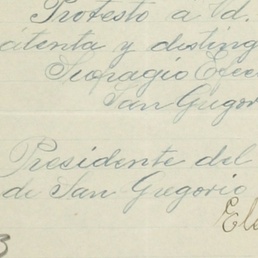 Protesto a Ud.
atenta y disting
Sufragio Efec
San Gregor
Presidente del
de San Gregorio
Ele
3